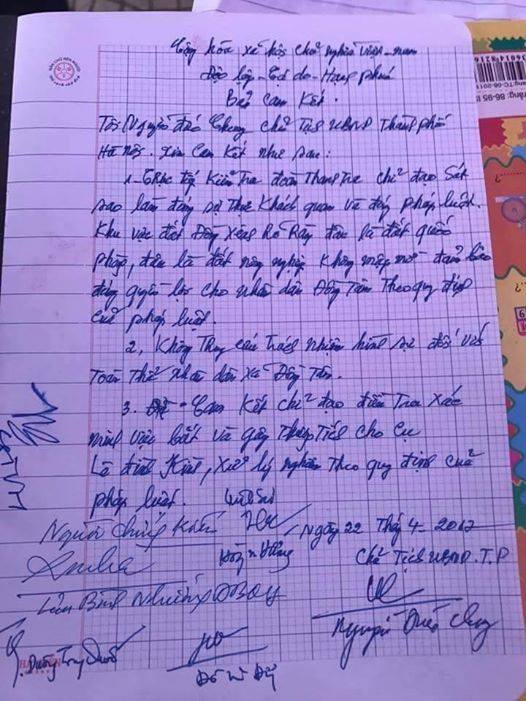 Cộng hòa xã hội chủ nghĩa Việt-nam
Độc lập-Tự do-Hạnh phúc
Bản Cam Kết.
Tôi Nguyễn Đức Chung chủ Tịch UBND Thành phố
Hà nội. Xin Cam Kết như sau:
1- Trực tiếp Kiểm Tra đoàn Thanh Tra chỉ đạo Sát
sao làm đúng sự Thật Khách quan và đúng pháp luật.
Khu vực đất Đồng Xênh Rõ Ràng đâu là đất quốc
phòng, đâu là đất nông nghiệp Không mập mờ đảm bảo
đúng quyền lợi cho nhân dân Đồng Tâm Theo quy định
của pháp luật.
2, Không Truy cứu Trách nhiệm hình sự đối với
Toàn Thể Nhân dân xã Đồng Tâm.
3. Cam Kết chỉ đạo điều Tra Xác
minh việc bắt và gây Thương Tích cho Cụ
Lê Đình Kình, Xử lý nghiêm Theo quy định của
pháp luật.
Người chứng Kiến
Ngày 22 Thg 4 2017
Chủ Tịch UBND.T.P
Lưu Bình Nhưỡng ĐBQH
Nguyễn Đức Chung